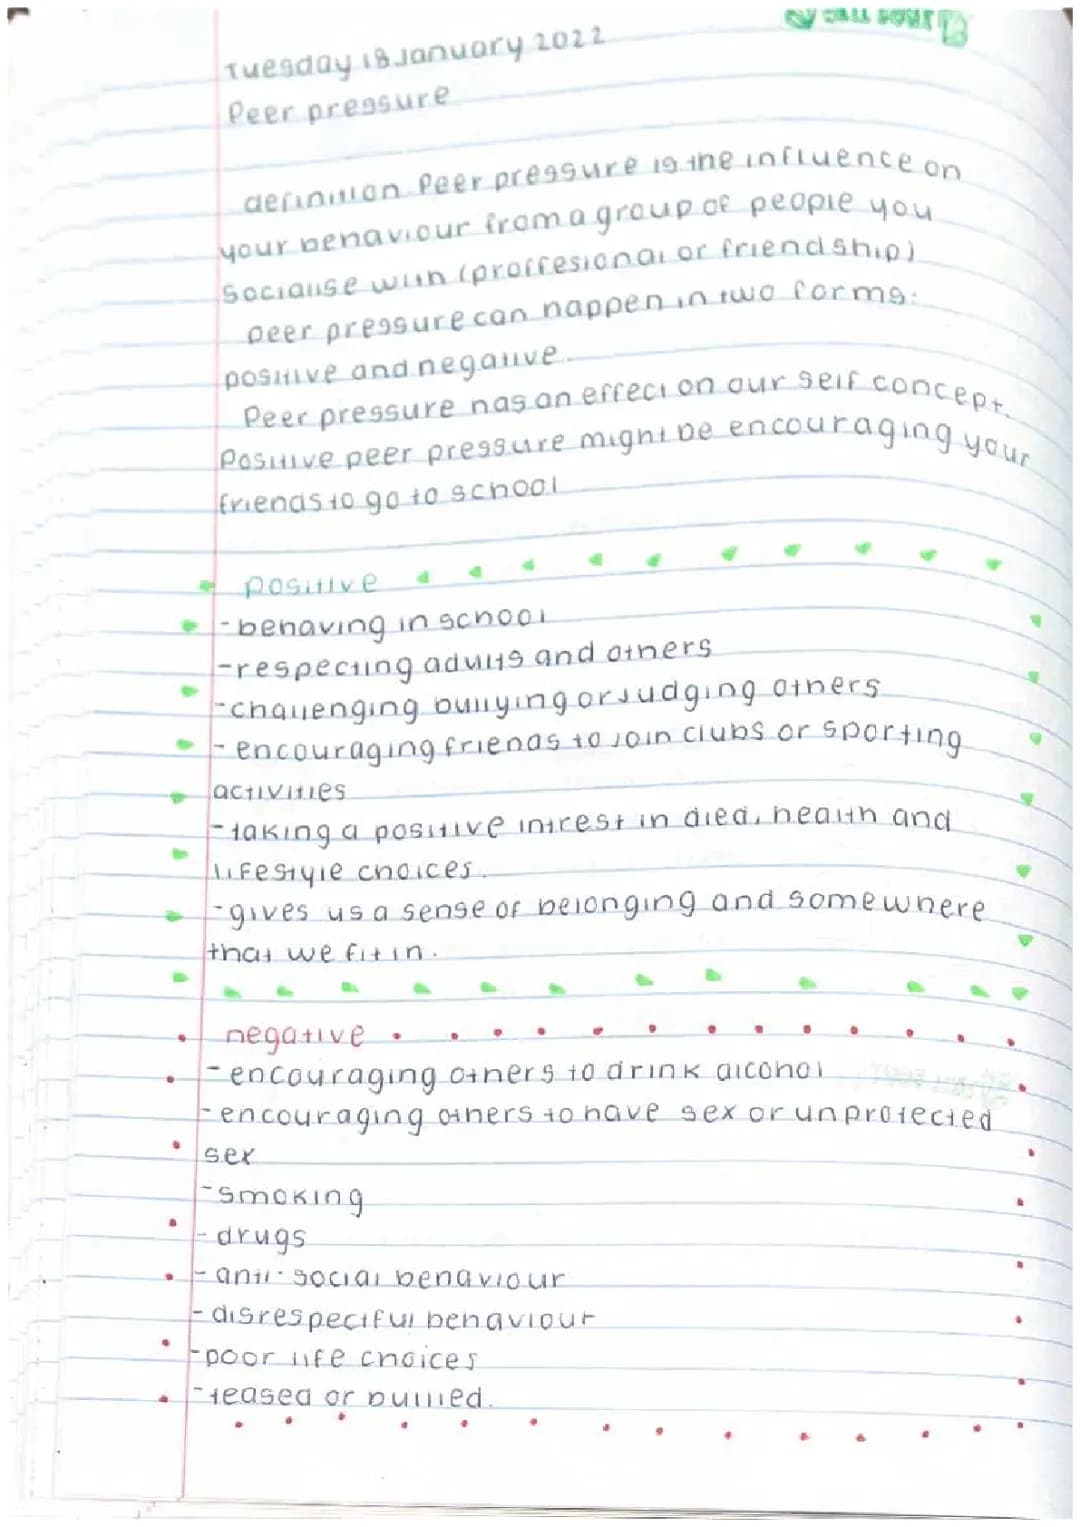 Tuesday 18 January 2022
Peer pressure
definition Peer pressure is the influence on
your behaviour from a group of people you
socialise with (proffesional or friendship)
peer pressure can happen in two forms:
positive and negative.
Peer pressure has an effect on our self concept.
Positive peer pressure might be encouraging your
friends to go to school
positive
-behaving in school
-respecting adults and others
-challenging bullying or judging others
-encouraging friends to join clubs or sporting
activities
-taking a positive intrest in died, health and
lifestyle choices.
-gives us a sense of belonging and somewhere
that we fit in.
negative
-encouraging others to drink alcohol
-encouraging others to have sex or unprotected
sex
-smoking
-drugs
-anti-social behaviour
-disrespectful behaviour
-poor life choices
-teased or bullied.